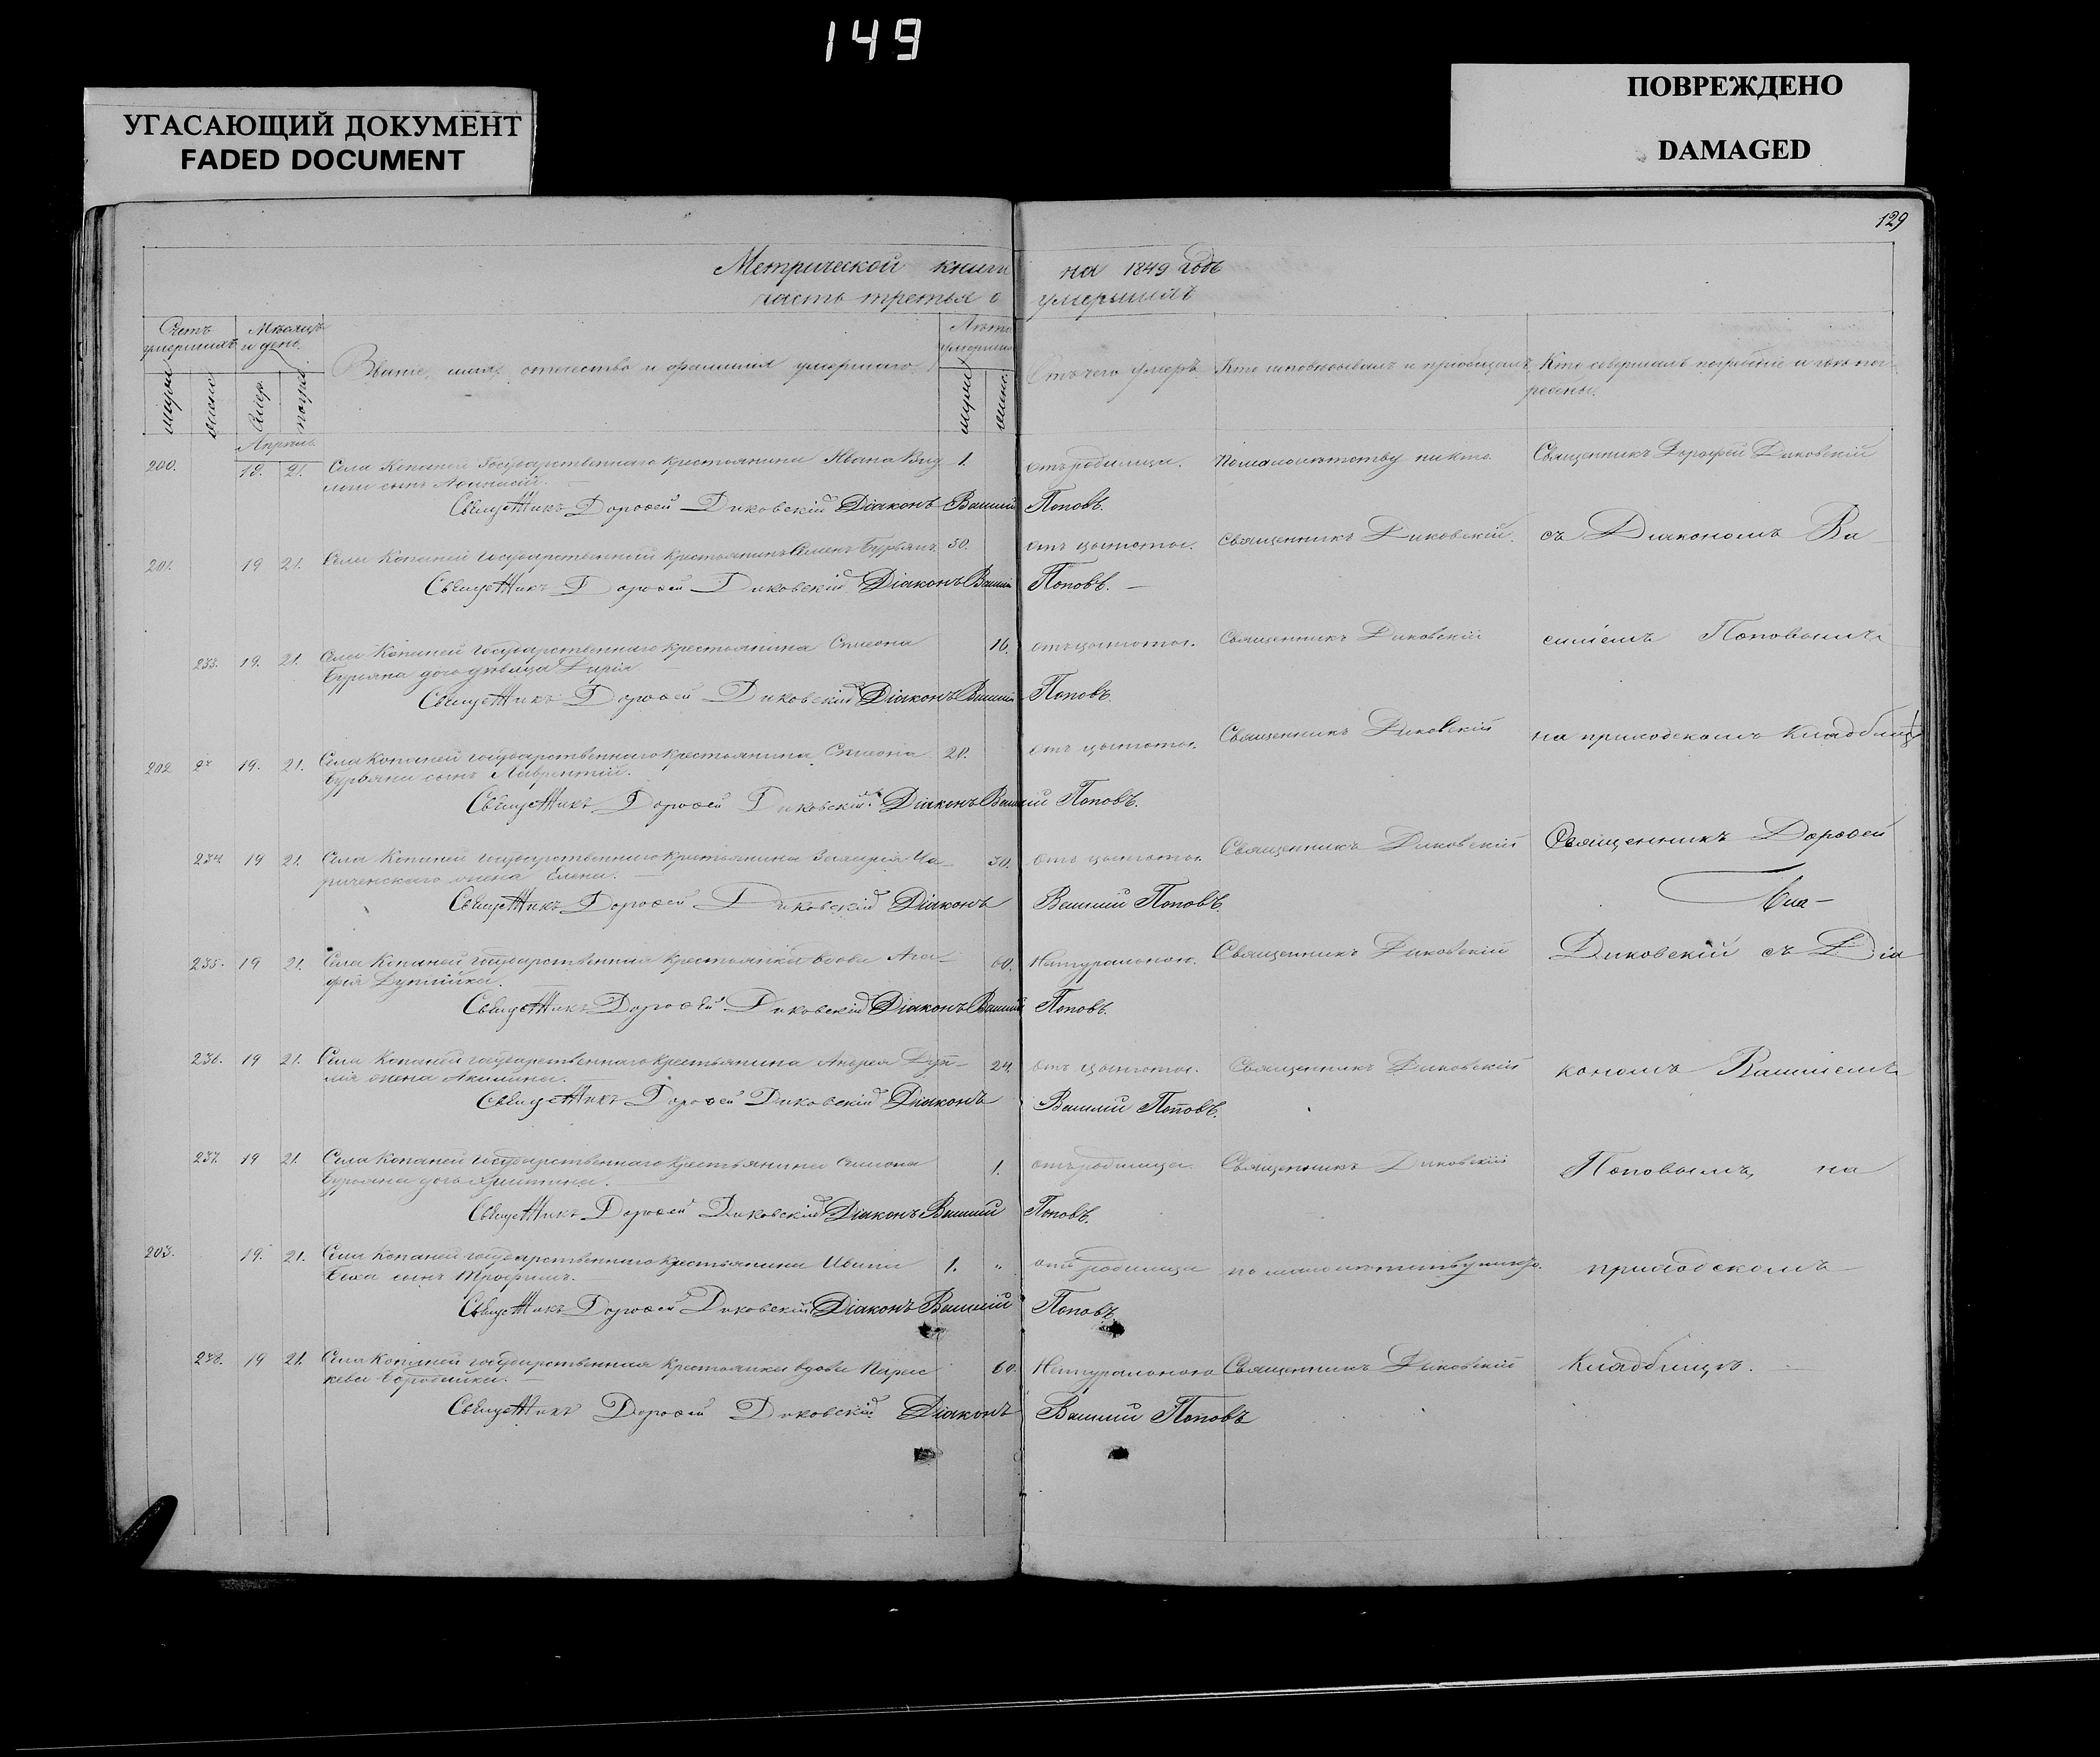 149
УГАСАЮЩИЙ ДОКУМЕНТ
FADED DOCUMENT
ПОВРЕЖДЕНО
DAMAGED
129
Метрической книги на 1849 годъ
часть третья о умершихъ
Счетъ умершихъ
Мѣсяцъ и день.
Званіе, имя, отечество и фамилія умершаго.
Лѣта умершаго
Отъ чего умеръ
Кто исповѣдывалъ и пріобщалъ
Кто совершалъ погребеніе и гдѣ погребены.
Апрѣль
200. 18. 21. Села Копаней Государственнаго крестьянина Ивана 1. отъ родимца. по малолѣтству никто. Священникъ Дорофей Диковскій
сынъ Афанасій.
Священникъ Дорофей Диковскій Діаконъ Василий Поповъ.
201. 19 21. Села Копаней государственный крестьянинъ Семенъ Бурьянъ 50. отъ цынготной. Священникъ Диковскій. съ Діакономъ Ва
Священникъ Дорофей Диковскій Діаконъ Василий Поповъ.
233. 19. 21. Села Копаней государственнаго крестьянина Симеона 16. отъ цынготной. Священникъ Диковскій силіемъ Поповымъ
Бурьяна дочь дѣвица Дарія
Священникъ Дорофей Диковскій Діаконъ Василий Поповъ.
202 19. 21. Села Копаней государственнаго крестьянина Симеона отъ цынготной. Священникъ Диковскій на приходскомъ кладбищѣ
Бурьяна сынъ Лаврентій.
Священникъ Дорофей Диковскій Діаконъ Василий Поповъ.
234 19 21. Села Копаней государственнаго крестьянина Ца- 30. отъ цынготной Священникъ Диковскій Священникъ Дорофей
риченскаго жена Елена.
Священникъ Дорофей Диковскій Діаконъ Василий Поповъ.
235. 19 21. Села Копаней государственная крестьянка вдова Ага- 60. Натуральною. Священникъ Диковскій Диковскій съ Діа
фія
Священникъ Дорофей Диковскій Діаконъ Василий Поповъ.
236. 19 21. Села Копаней государственнаго крестьянина Андрея 24. отъ цынготной. Священникъ Диковскій кономъ Василіемъ
жена Акилина.
Священникъ Дорофей Диковскій Діаконъ Василий Поповъ.
237. 19 21. Села Копаней государственнаго крестьянина Симеона 1. отъ родимца Священникъ Диковскій Поповымъ, на
Бурьяна дочь Христина.
Священникъ Дорофей Диковскій Діаконъ Василий Поповъ.
203. 19. 21. Села Копаней государственнаго крестьянина Ивана 1. " отъ родимца по малолѣтству никто. приходскомъ
сынъ Трофимъ.
Священникъ Дорофей Диковскій Діаконъ Василий Поповъ.
238. 19 21. Села Копаней государственная крестьянка вдова Парас 60. Натуральною Священникъ Диковскій Кладбищѣ.
кева
Священникъ Дорофей Диковскій Діаконъ Василий Поповъ